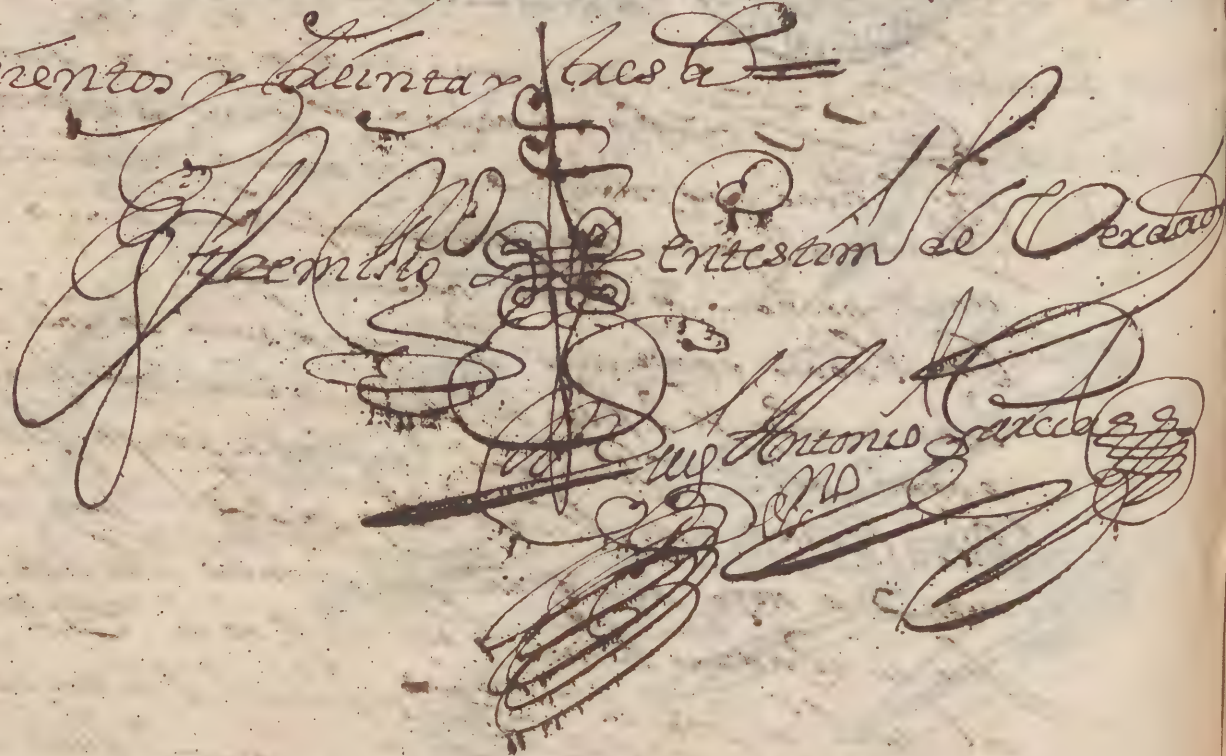 cientos y treinta y tres a
fize mi signo en testim de Verdad
Luis Antonio Garcia
no